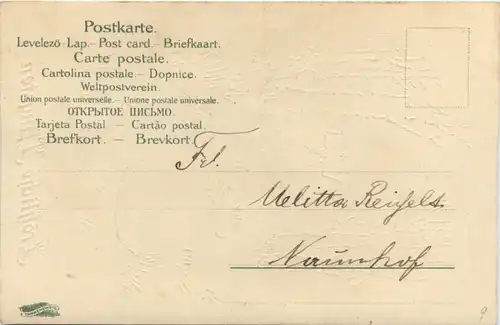 Postkarte.
Levelező Lap. – Post card. – Briefkaart.
Carte postale.
Cartolina postale. – Dopnice.
Weltpostverein
Union postale universelle. – Unione postale universale.
ОТКРЫТОЕ ПИСЬМО.
Tarjeta Postal – Cartão postal.
Brefkort. – Brevkort.
Frl.
Melitta
Naunhof
9